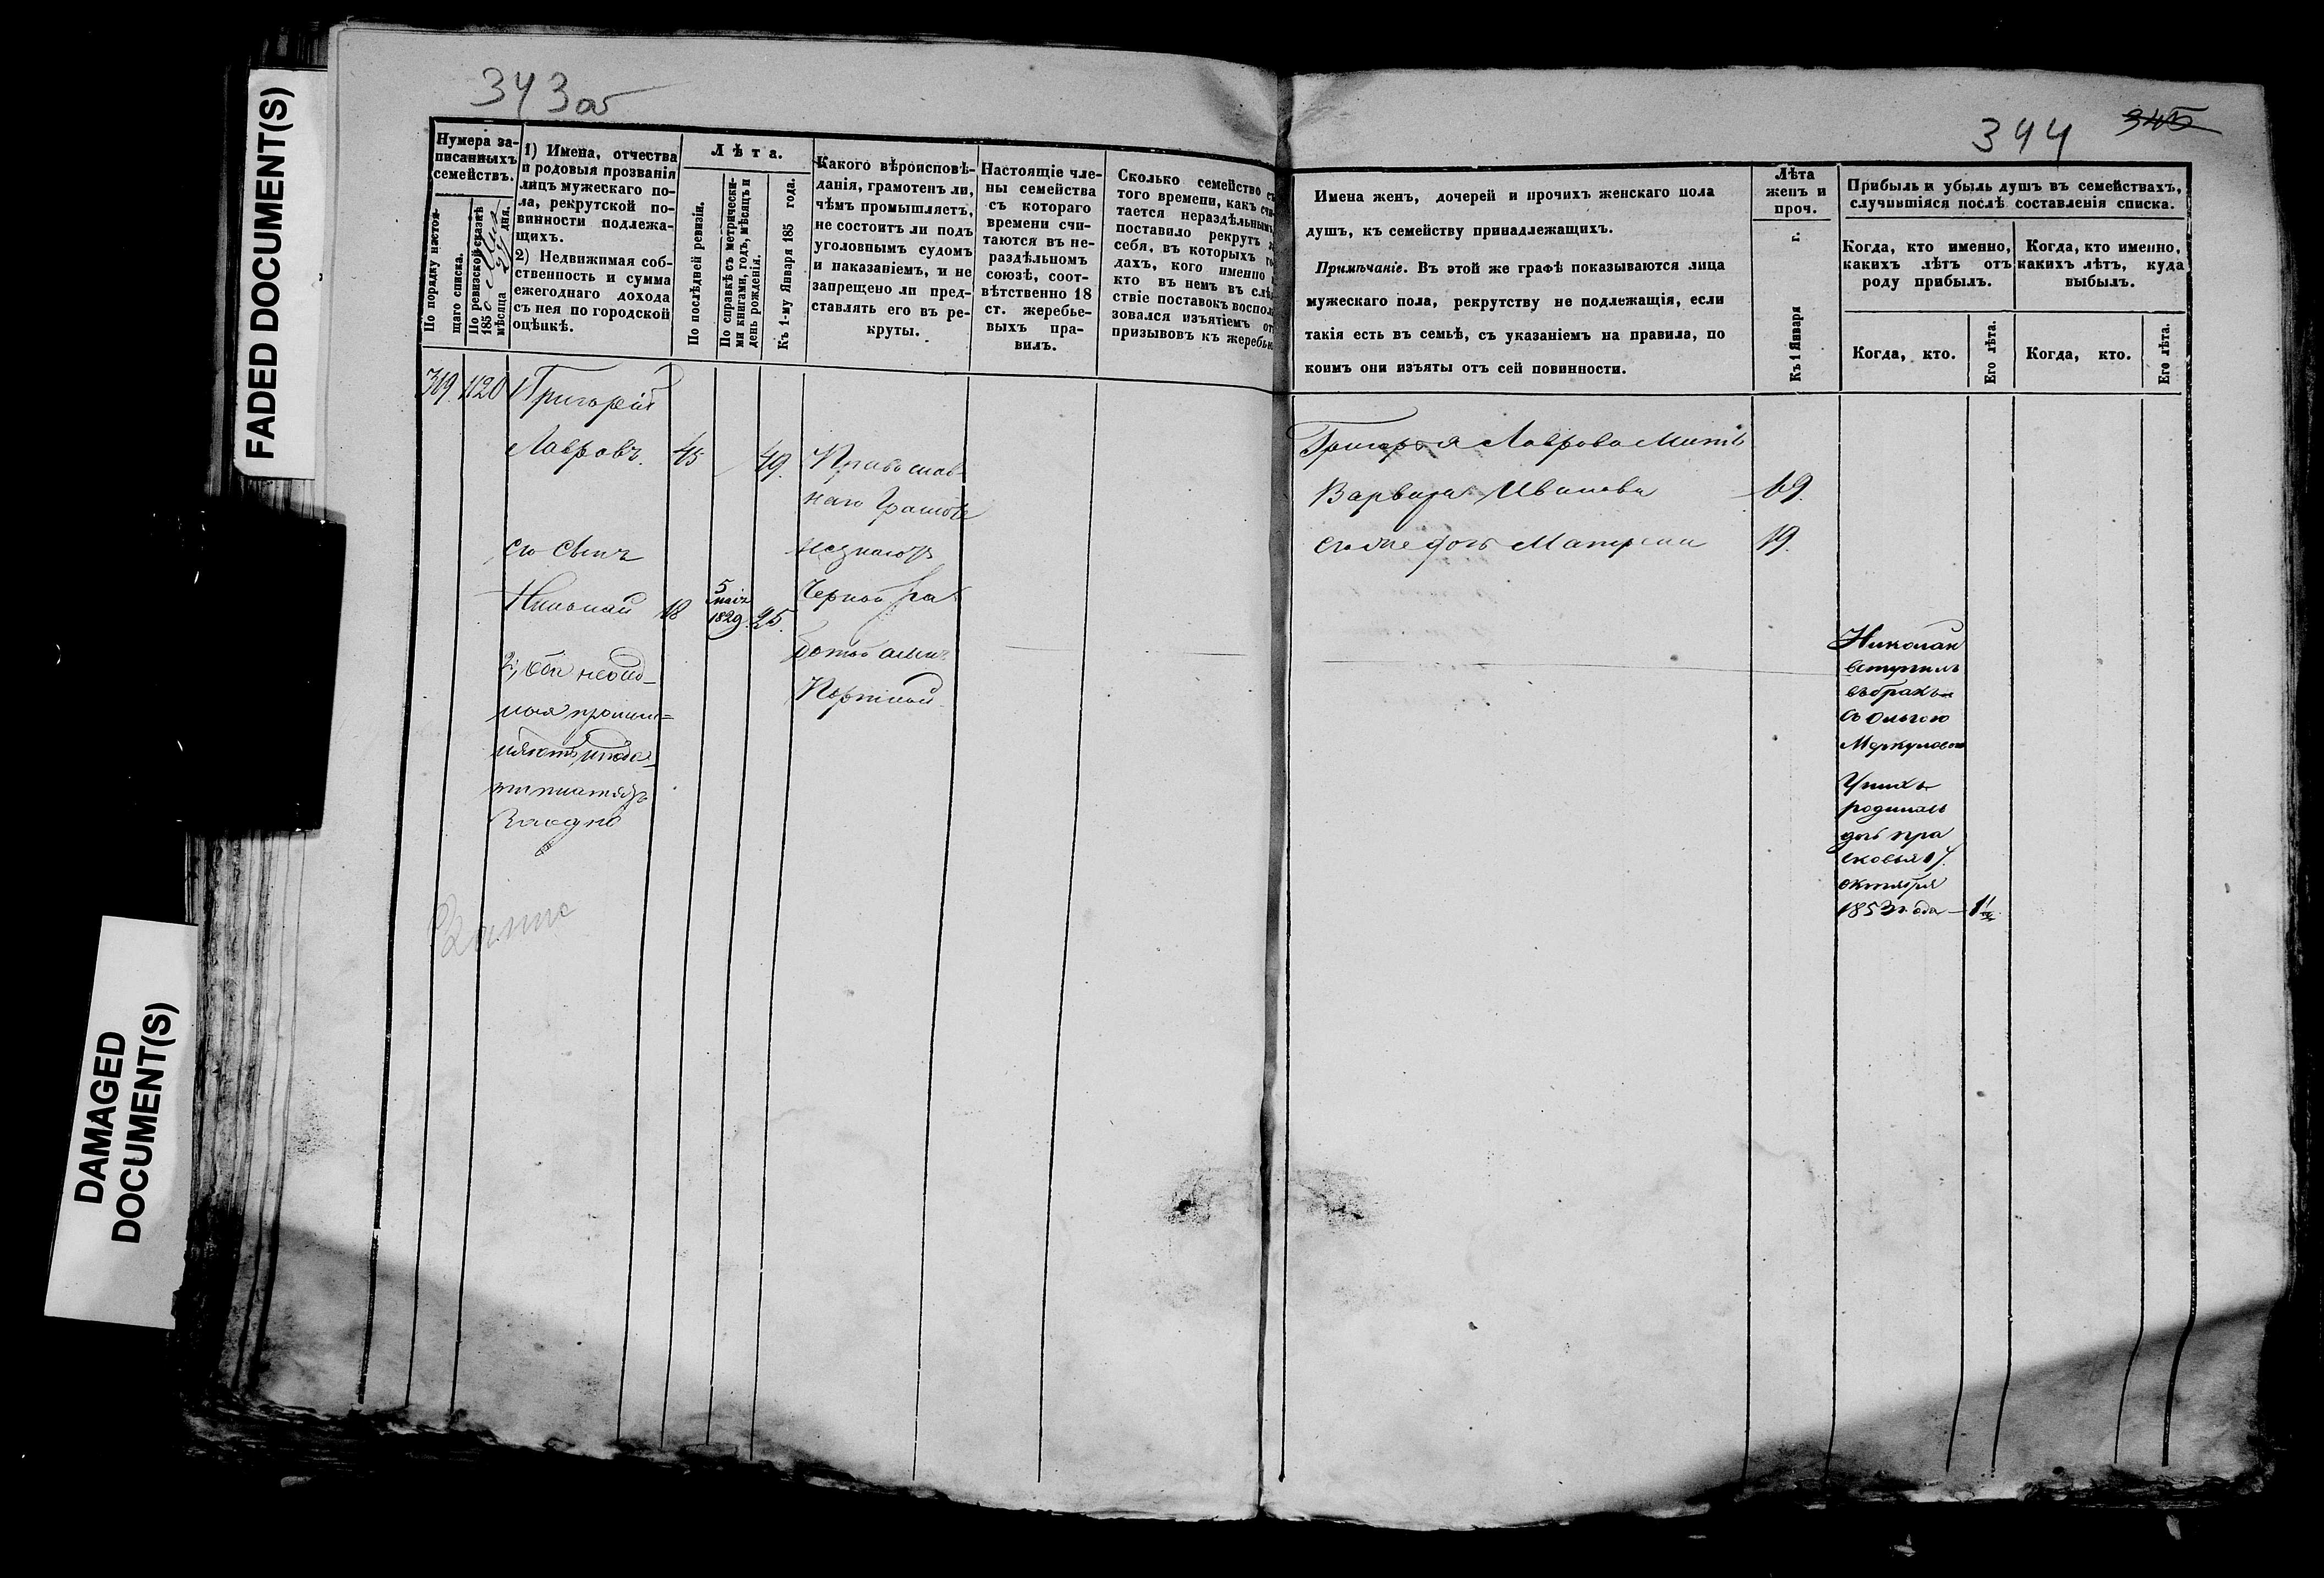 FADED DOCUMENT(S)
DAMAGED
DOCUMENT(S)
343 об
Нумера за-
писанныхъ
семействъ.
По порядку настоя-
щаго списка.
По ревизской сказкѣ
185
мѣсяца
дня.
1) Имена, отчества
и родовыя прозванія
лицъ мужескаго по-
ла, рекрутской по-
винности подлежа-
щихъ.
2) Недвижимая соб-
ственность и сумма
ежегоднаго дохода
съ нея по городской
оцѣнкѣ.
Лѣта.
По послѣдней ревизіи.
По справкѣ съ метрически-
ми книгами, годъ, мѣсяцъ и
день рожденія.
Къ 1-му Января 185 года.
Какого вѣроисповѣ-
данія, грамотенъ ли,
чѣмъ промышляетъ,
не состоитъ ли подъ
уголовнымъ судомъ
и наказаніемъ, и не
запрещено ли пред-
ставлять его въ ре-
круты.
Настоящіе чле-
ны семейства
съ котораго
времени счи-
таются въ не-
раздѣльномъ
союзѣ, соот-
вѣтственно 18
ст. жеребье-
выхъ пра-
вилъ.
Сколько семейство съ
того времени, какъ счи-
тается нераздѣльнымъ
поставило рекрутъ
себя, въ которыхъ го-
дахъ, кого именно
кто въ немъ въ слѣд
ствіе поставокъ воспол
зовался изъятіемъ от
призывовъ къ жеребью
319. 1120 1 Григорій
Лавровъ. 45 49. Православ
наго Грамотѣ
его Сынъ незнаютъ
Николай 18 5 маія 1829. 25. Черной ра
ботой
Портной
344 345
Имена женъ, дочерей и прочихъ женскаго пола
душъ, къ семейству принадлежащихъ.
Примѣчаніе. Въ этой же графѣ показываются лица
мужескаго пола, рекрутству не подлежащія, если
такія есть въ семьѣ, съ указаніемъ на правила, по
коимъ они изъяты отъ сей повинности.
Лѣта
женъ и
проч.
Къ 1 Января г.
Прибыль и убыль душъ въ семействахъ,
случившіяся послѣ составленія списка.
Когда, кто именно,
какихъ лѣтъ отъ
роду прибылъ.
Когда, кто именно,
какихъ лѣтъ, куда
выбылъ.
Когда, кто.
Его лѣта.
Когда, кто.
Его лѣта.
Григорья Лаврова Мать
Варвара Иванова 69.
дочь Матрена 19.
Николай
вступилъ
въ бракъ
съ Ольгою
Меркуловою
У нихъ
родилась
дочь Пра
сковья
октября
1853 года